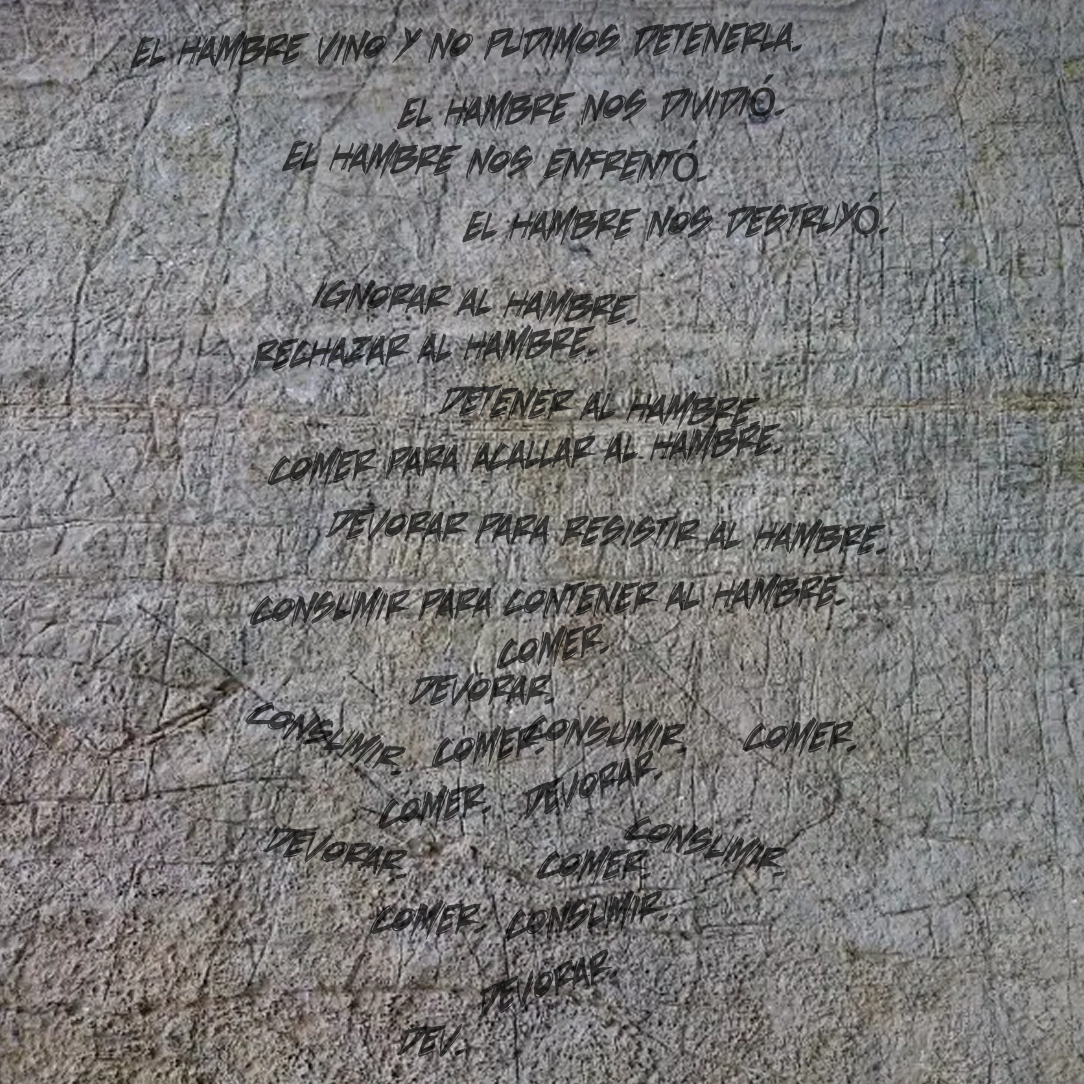 EL HAMBRE VINO Y NO PUDIMOS DETENERLA.
EL HAMBRE NOS DIVIDIÓ.
EL HAMBRE NOS ENFRENTÓ.
EL HAMBRE NOS DESTRUYÓ.
IGNORAR AL HAMBRE.
RECHAZAR AL HAMBRE.
DETENER AL HAMBRE
COMER PARA ACALLAR AL HAMBRE.
DEVORAR PARA RESISTIR AL HAMBRE.
CONSUMIR PARA CONTENER AL HAMBRE.
COMER.
DEVORAR.
CONSUMIR. COMER. CONSUMIR. COMER.
COMER. DEVORAR.
DEVORAR. COMER. CONSUMIR.
COMER. CONSUMIR.
DEVORAR.
DEV.